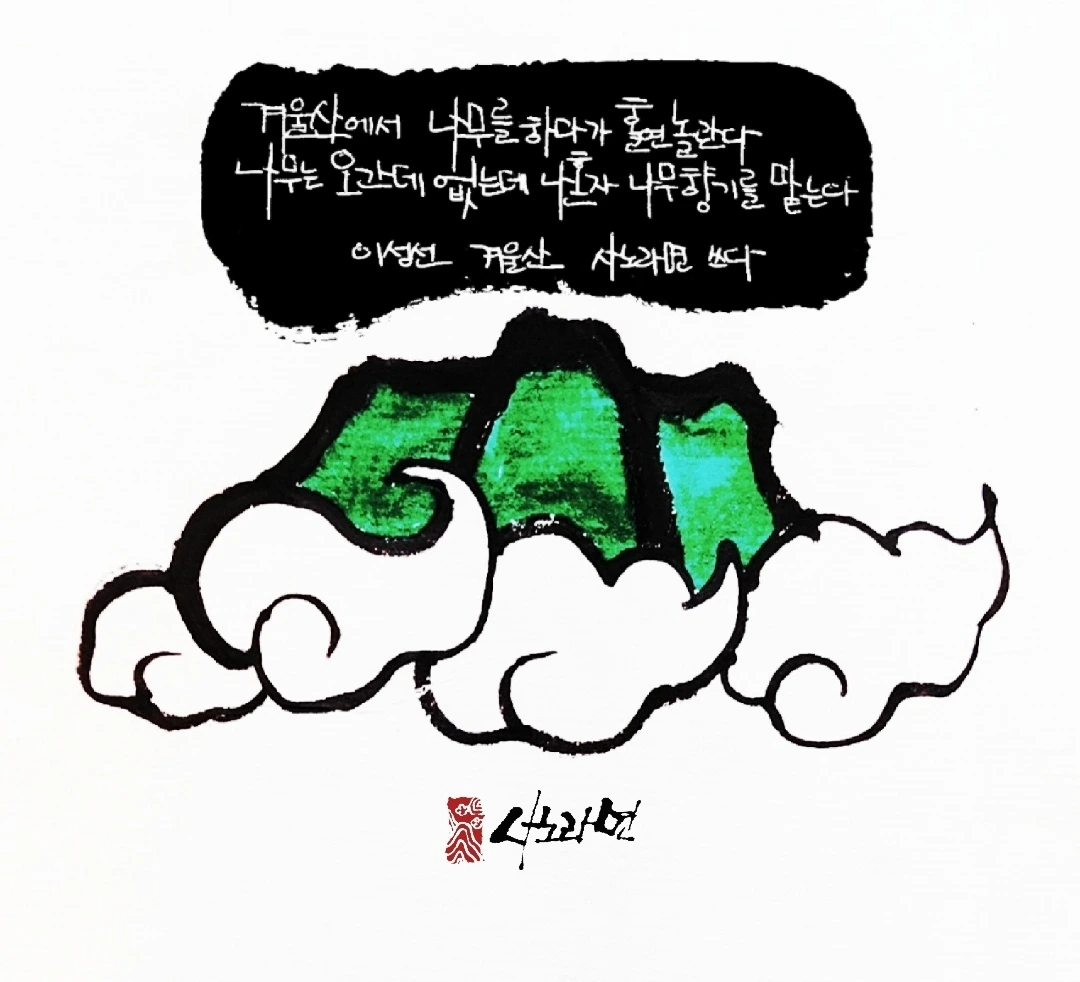 겨울산에서 나무를 하다가 홀연 놀란다
나무는 오간데 없는데 나 혼자 나무향기를 맡는다
이성선 겨울산 사노라면 쓰다
사노라면